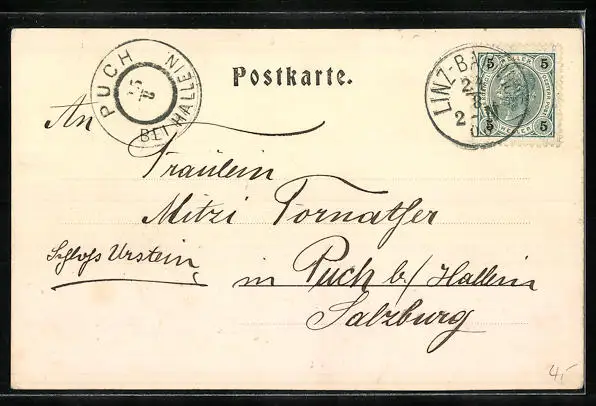 PUCH
BEI HALLEIN
Postkarte.
LINZ-BA
5 HELLER 5
5 HELLER 5
An
Fräulein
Mitzi Tornather
Schloss Urstein,
in Puch b/ Hallein
Salzburg
4,-